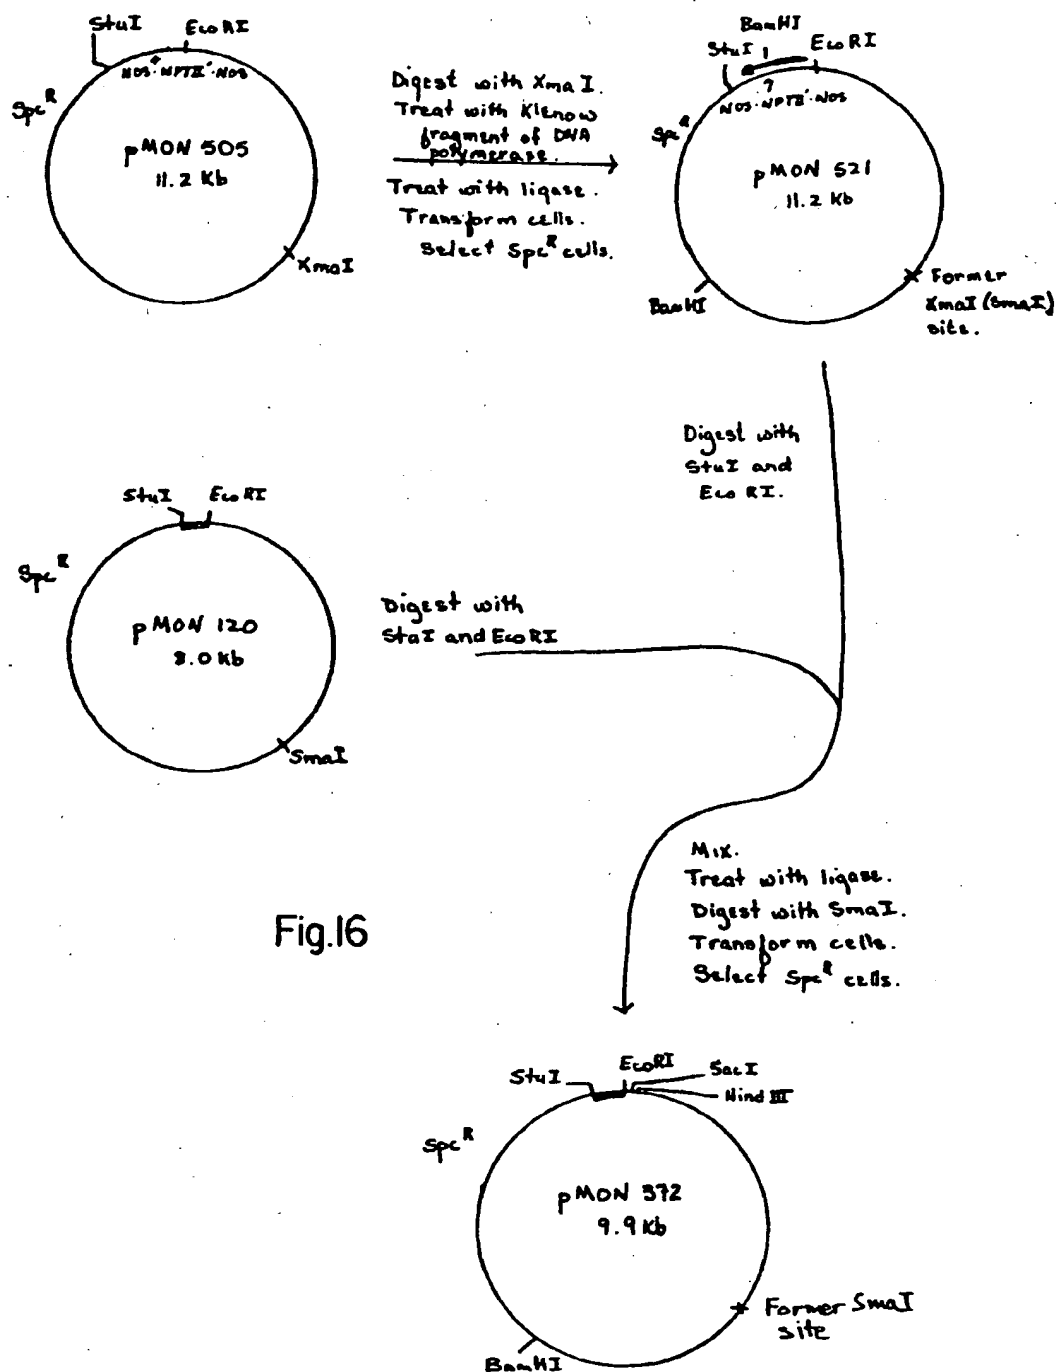 StuI
EcoRI
NOS·NPTII'·NOS
Spc^R
pMON 505
11.2 Kb
XmaI
Digest with XmaI.
Treat with Klenow
fragment of DNA
polymerase.
Treat with ligase.
Transform cells.
Select Spc^R cells.
BamHI
StuI
EcoRI
NOS·NPTII'·NOS
Spc^R
pMON 521
11.2 Kb
BamHI
Former
XmaI (SmaI)
site.
Digest with
StuI and
EcoRI.
StuI
EcoRI
Spc^R
pMON 120
8.0 Kb
SmaI
Digest with
StuI and EcoRI
Mix.
Treat with ligase.
Digest with SmaI.
Transform cells.
Select Spc^R cells.
Fig.16
StuI
EcoRI
SacI
Hind III
Spc^R
pMON 372
9.9 Kb
Former SmaI
site
BamHI